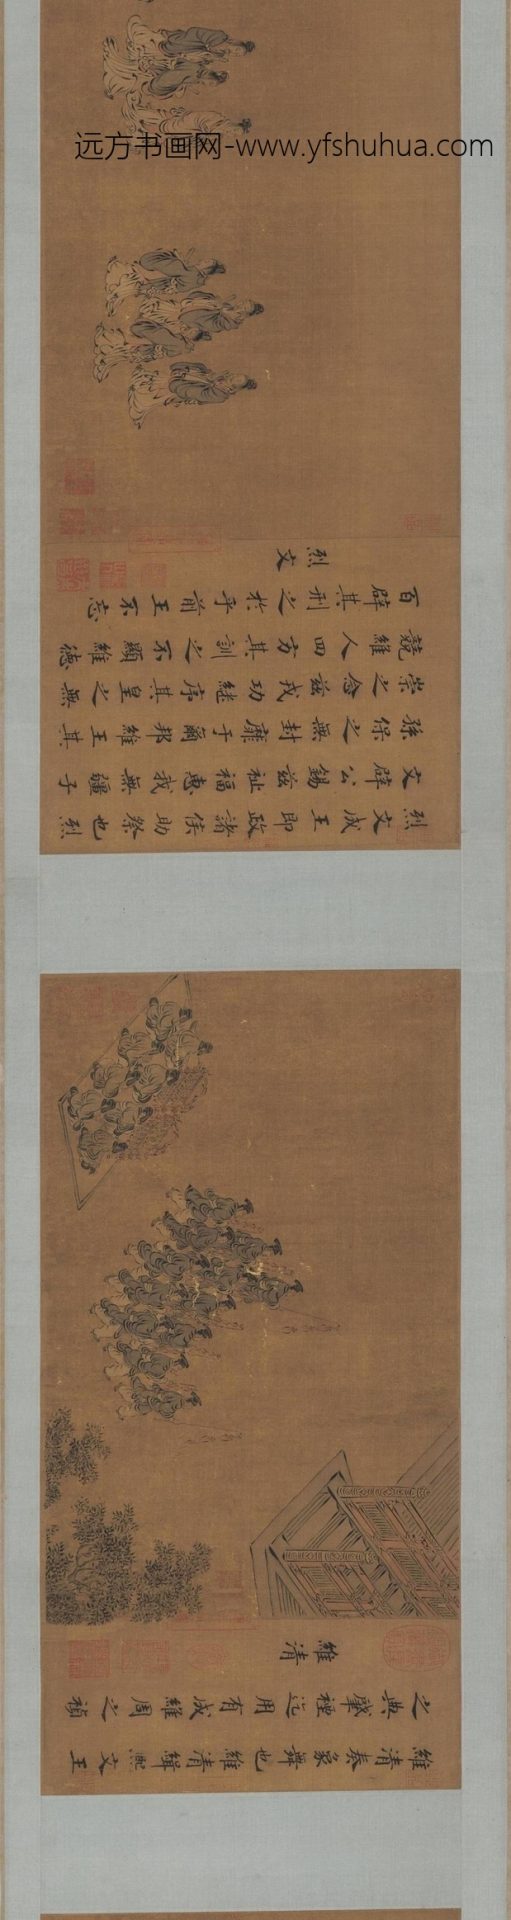 維清奏象舞也維清緝熙文王
之典肇禋迄用有成維周之禎
維清
烈文成王即政諸侯助祭也烈
文辟公錫茲祉福惠我無疆子
孫保之無封靡于爾邦維王其
崇之念茲戎功繼序其皇之無
競維人四方其訓之不顯維德
百辟其刑之於乎前王不忘
烈文
远方书画网-www.yfshuhua.com